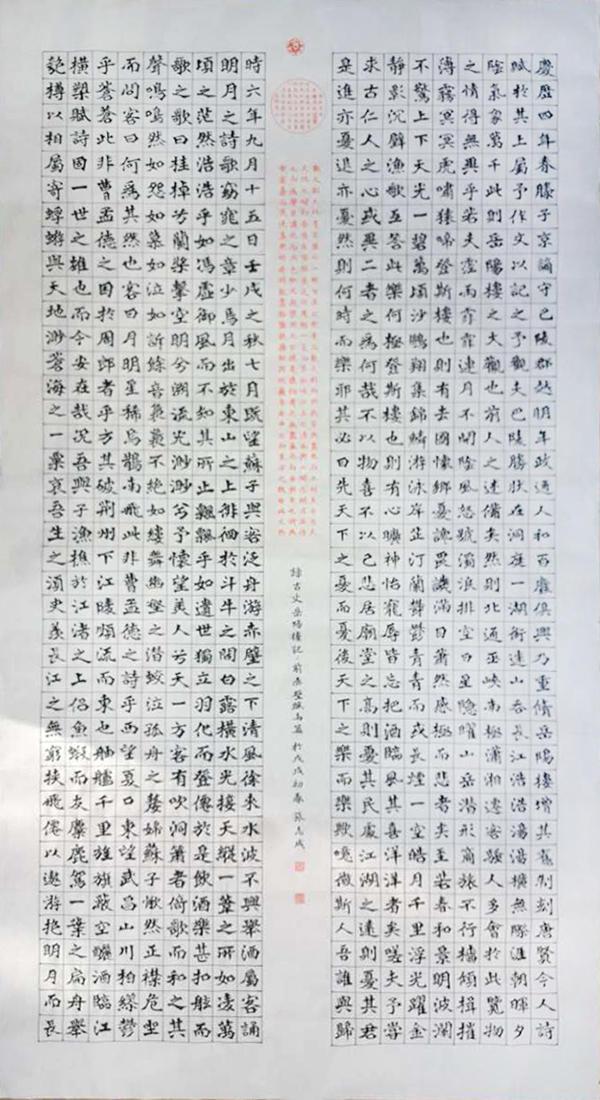 慶歷四年春滕子京謫守巴陵郡越明年政通人和百廢俱興乃重修岳陽樓增其舊制刻唐賢今人詩
賦於其上屬予作文以記之予觀夫巴陵勝狀在洞庭一湖銜遠山吞長江浩浩湯湯橫無際涯朝暉夕
陰氣象萬千此則岳陽樓之大觀也前人之述備矣然則北通巫峽南極瀟湘遷客騷人多會於此覽物
之情得無異乎若夫霪雨霏霏連月不開陰風怒號濁浪排空日星隱曜山岳潛形商旅不行檣傾楫摧
薄霧冥冥虎嘯猿啼登斯樓也則有去國懷鄉憂讒畏譏滿目蕭然感極而悲者矣至若春和景明波瀾
不驚上下天光一碧萬頃沙鷗翔集錦鱗游泳岸芷汀蘭鬱鬱青青而或長煙一空皓月千里浮光躍金
靜影沉璧漁歌互答此樂何極登斯樓也則有心曠神怡寵辱皆忘把酒臨風其喜洋洋者矣嗟夫予嘗
求古仁人之心或異二者之為何哉不以物喜不以己悲居廟堂之高則憂其民處江湖之遠則憂其君
是進亦憂退亦憂然則何時而樂耶其必曰先天下之憂而憂後天下之樂而樂歟噫微斯人吾誰與歸
錄古文岳陽樓記前赤壁賦兩篇於戊戌初春張志成
時六年九月十五日壬戌之秋七月既望蘇子與客泛舟游赤壁之下清風徐來水波不興舉酒屬客誦
明月之詩歌窈窕之章少焉月出於東山之上徘徊於斗牛之間白露橫水光接天縱一葦之所如凌萬
頃之茫然浩浩乎如馮虛御風而不知其所止飄飄乎如遺世獨立羽化而登僊於是飲酒樂甚扣舷而
歌之歌曰桂棹兮蘭槳擊空明兮溯流光渺渺兮予懷望美人兮天一方客有吹洞簫者倚歌而和之其
聲嗚嗚然如怨如慕如泣如訴餘音裊裊不絕如縷舞幽壑之潛蛟泣孤舟之嫠婦蘇子愀然正襟危坐
而問客曰何為其然也客曰月明星稀烏鵲南飛此非曹孟德之詩乎西望夏口東望武昌山川相繆鬱
乎蒼蒼此非孟德之困於周郎者乎方其破荊州下江陵順流而東也舳艫千里旌旗蔽空釃酒臨江
橫槊賦詩固一世之雄也而今安在哉況吾與子漁樵於江渚之上侶魚蝦而友麋鹿駕一葉之扁舟舉
匏樽以相屬寄蜉蝣與天地渺蒼海之一粟哀吾生之須臾羨長江之無窮挾飛僊以遨游抱明月而長